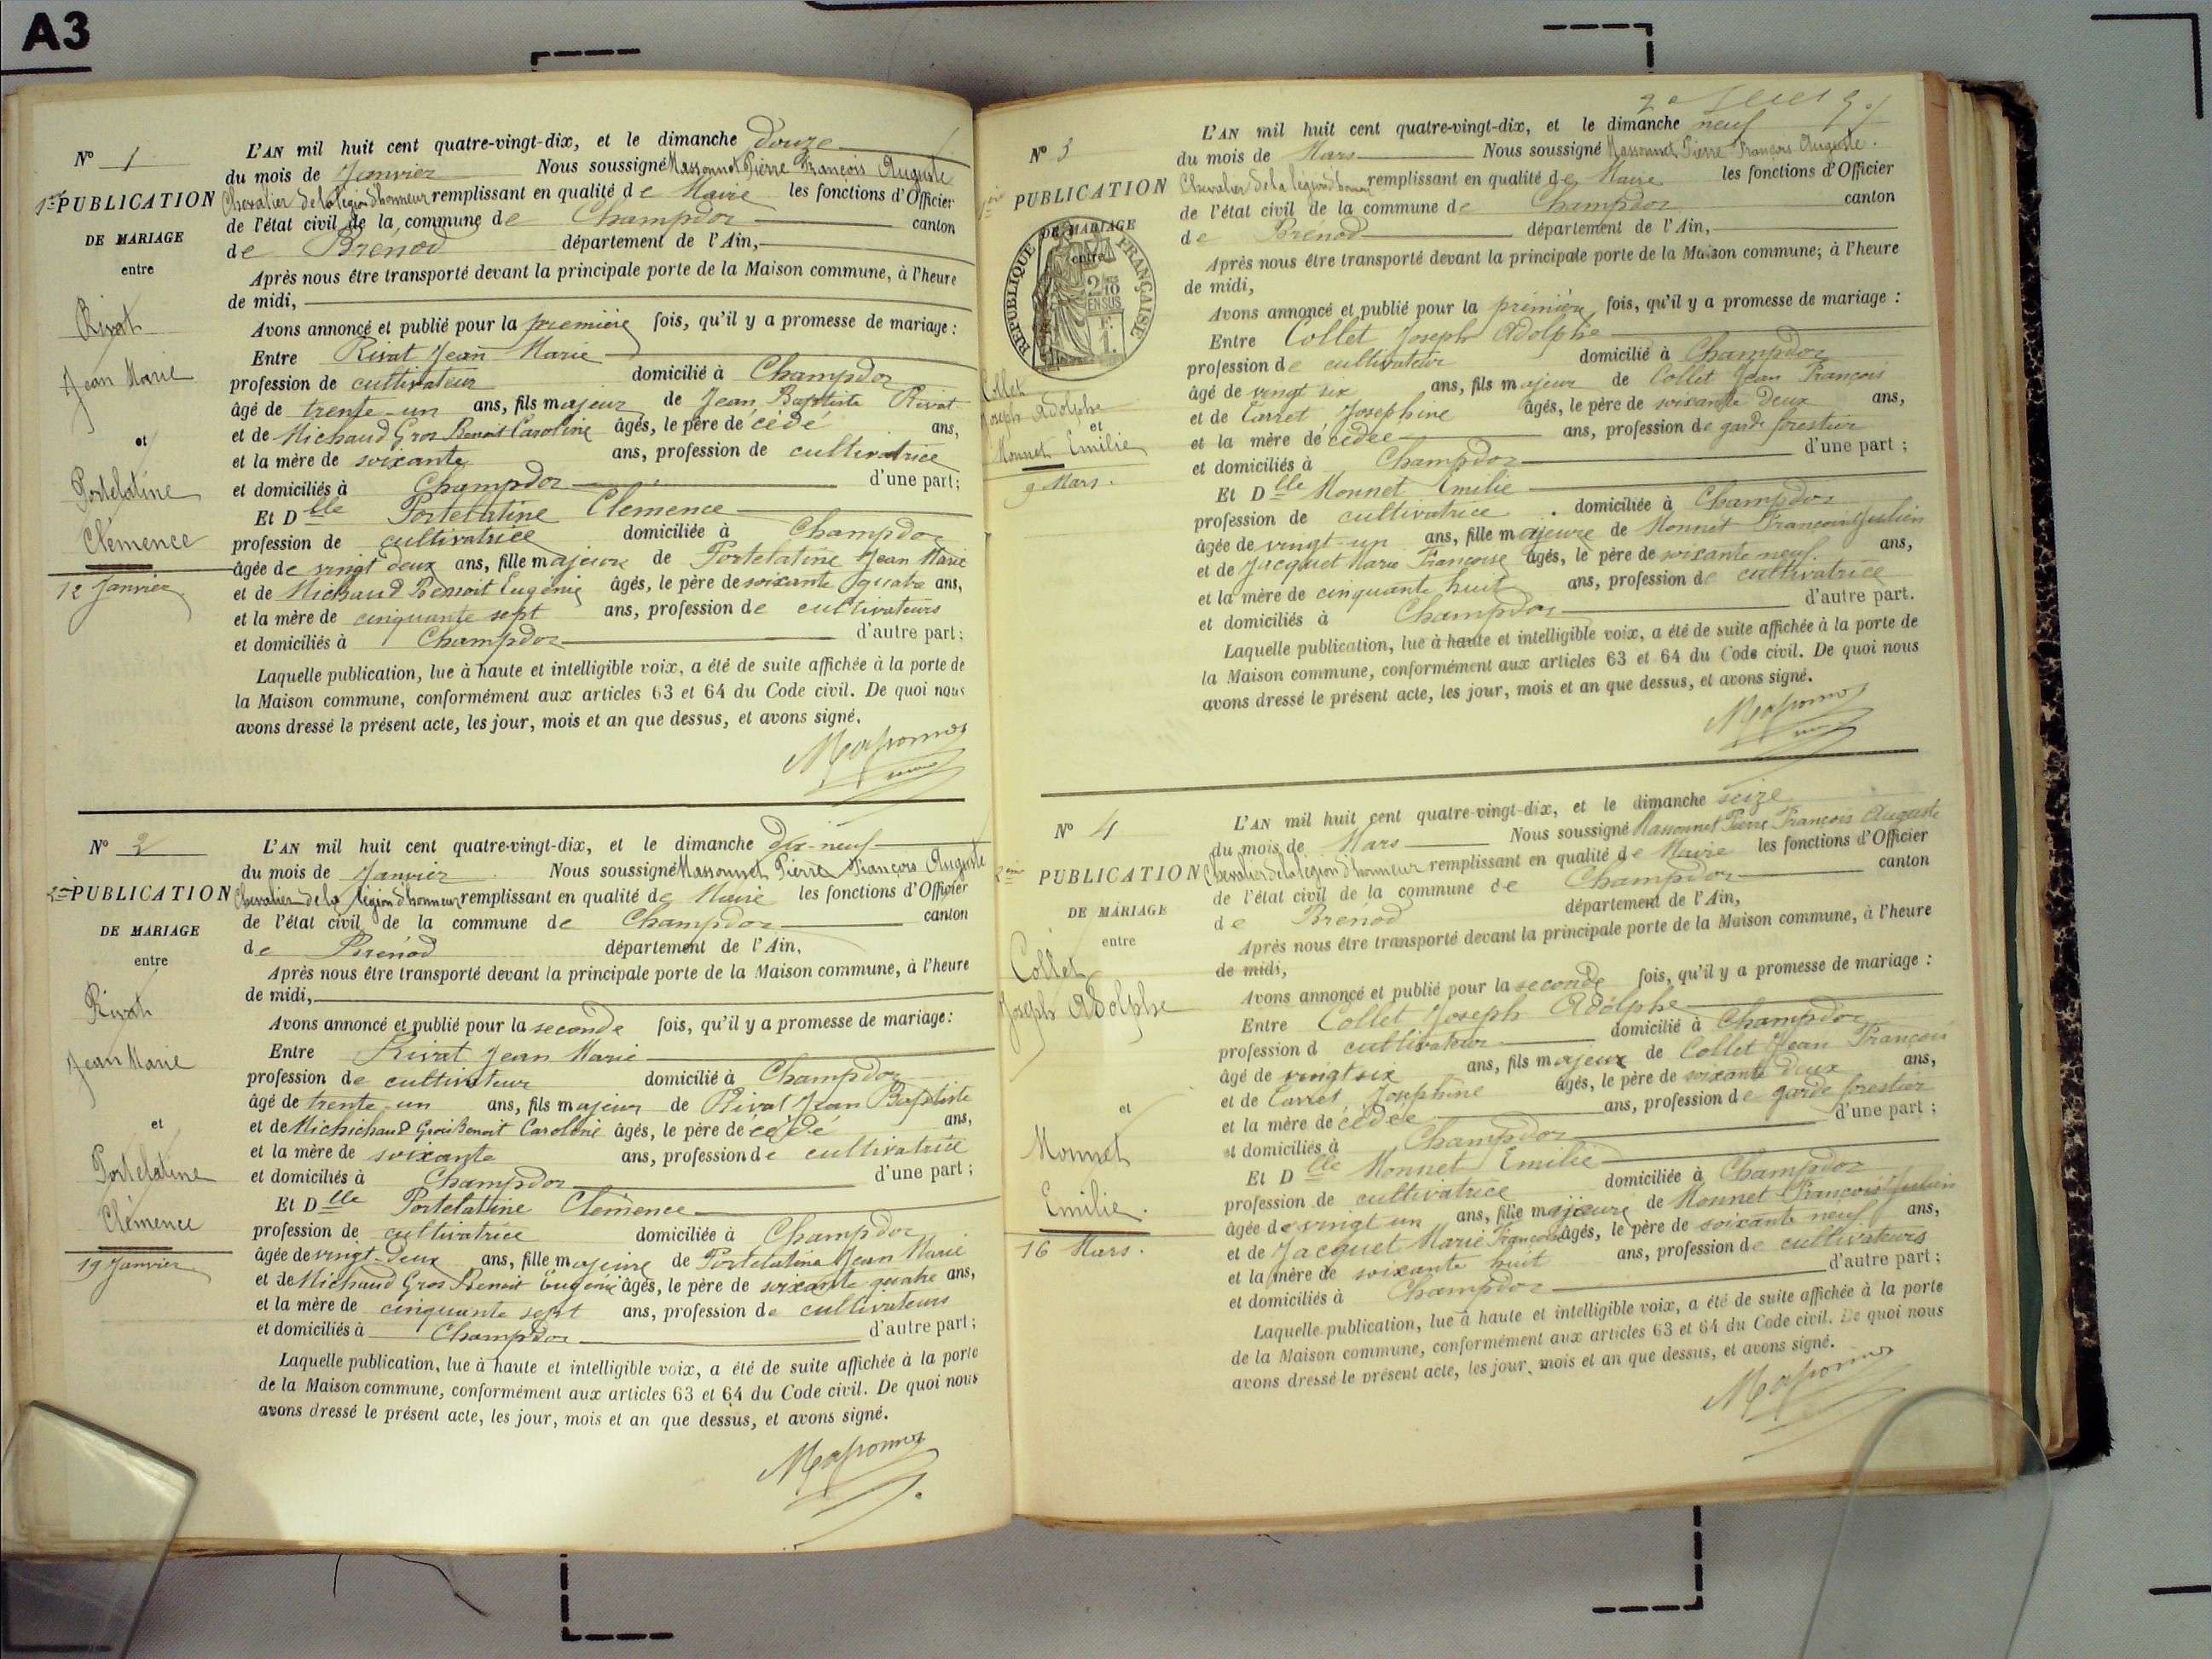 A3
N° 1
1re PUBLICATION
DE MARIAGE
entre
Rivat
Jean Marie
et
Portelatine
Clémence
12 Janvier
L'AN mil huit cent quatre-vingt-dix, et le dimanche douze
du mois de Janvier Nous soussigné Massonnet Pierre François Auguste
Chevalier de la légion d'honneur remplissant en qualité de Maire les fonctions d'Officier
de l'état civil de la commune de Champdor canton
de Brénod département de l'Ain,
Après nous être transporté devant la principale porte de la Maison commune, à l'heure
de midi,
Avons annoncé et publié pour la première fois, qu'il y a promesse de mariage :
Entre Rivat Jean Marie
profession de cultivateur domicilié à Champdor
âgé de trente-un ans, fils majeur de Jean Baptiste Rivat
et de Michaud Gros Benoit Caroline âgés, le père de cédé ans,
et la mère de soixante ans, profession de cultivatrice
et domiciliés à Champdor d'une part;
Et Dlle Portelatine Clemence
profession de cultivatrice domiciliée à Champdor
âgée de vingt deux ans, fille majeure de Portelatine Jean Marie
et de Michaud Benoit Eugénie âgés, le père de soixante quatre ans,
et la mère de cinquante sept ans, profession de cultivateurs
et domiciliés à Champdor d'autre part;
Laquelle publication, lue à haute et intelligible voix, a été de suite affichée à la porte de
la Maison commune, conformément aux articles 63 et 64 du Code civil. De quoi nous
avons dressé le présent acte, les jour, mois et an que dessus, et avons signé.
Massonnet
N° 2
2e PUBLICATION
DE MARIAGE
entre
Rivat
Jean Marie
et
Portelatine
Clémence
19 Janvier
L'AN mil huit cent quatre-vingt-dix, et le dimanche dix-neuf
du mois de Janvier Nous soussigné Massonnet Pierre François Auguste
Chevalier de la légion d'honneur remplissant en qualité de Maire les fonctions d'Officier
de l'état civil de la commune de Champdor canton
de Brénod département de l'Ain,
Après nous être transporté devant la principale porte de la Maison commune, à l'heure
de midi,
Avons annoncé et publié pour la seconde fois, qu'il y a promesse de mariage:
Entre Rivat Jean Marie
profession de cultivateur domicilié à Champdor
âgé de trente-un ans, fils majeur de Rivat Jean Baptiste
et de Michichaud Gros Benoit Caroline âgés, le père de cédé ans,
et la mère de soixante ans, profession de cultivatrice
et domiciliés à Champdor d'une part;
Et Dlle Portelatine Clémence
profession de cultivatrice domiciliée à Champdor
âgée de vingt-deux ans, fille majeure de Portelatine Jean Marie
et de Michaud Gros Benoit Eugénie âgés, le père de soixante quatre ans,
et la mère de cinquante sept ans, profession de cultivateurs
et domiciliés à Champdor d'autre part;
Laquelle publication, lue à haute et intelligible voix, a été de suite affichée à la porte
de la Maison commune, conformément aux articles 63 et 64 du Code civil. De quoi nous
avons dressé le présent acte, les jour, mois et an que dessus, et avons signé.
Massonnet
N° 3
1ère PUBLICATION
DE MARIAGE
entre
RÉPUBLIQUE FRANÇAISE
Collet
Joseph Adolphe
et
Monnet Emilie
9 Mars.
L'AN mil huit cent quatre-vingt-dix, et le dimanche neuf
du mois de Mars Nous soussigné Massonnet Pierre François Auguste.
Chevalier de la légion d'honneur remplissant en qualité de Maire les fonctions d'Officier
de l'état civil de la commune de Champdor canton
de Brénod département de l'Ain,
Après nous être transporté devant la principale porte de la Maison commune; à l'heure
de midi,
Avons annoncé et publié pour la première fois, qu'il y a promesse de mariage :
Entre Collet Joseph Adolphe
profession de cultivateur domicilié à Champdor
âgé de vingt six ans, fils majeur de Collet Jean François
et de Carret Josephine âgés, le père de soixante deux ans,
et la mère de cédée ans, profession de garde forestier
et domiciliés à Champdor d'une part;
Et Dlle Monnet Emilie
profession de cultivatrice domiciliée à Champdor
âgée de vingt-un ans, fille majeure de Monnet François Julien
et de Jacquet Marie Françoise âgés, le père de soixante neuf ans,
et la mère de cinquante huit ans, profession de cultivatrice
et domiciliés à Champdor d'autre part.
Laquelle publication, lue à haute et intelligible voix, a été de suite affichée à la porte de
la Maison commune, conformément aux articles 63 et 64 du Code civil. De quoi nous
avons dressé le présent acte, les jour, mois et an que dessus, et avons signé.
Massonnet
N° 4
2ème PUBLICATION
DE MARIAGE
entre
Collet
Joseph Adolphe
et
Monnet
Emilie.
16 Mars.
L'AN mil huit cent quatre-vingt-dix, et le dimanche seize
du mois de Mars Nous soussigné Massonnet Pierre François Auguste
Chevalier de la légion d'honneur remplissant en qualité de Maire les fonctions d'Officier
de l'état civil de la commune de Champdor canton
de Brénod département de l'Ain,
Après nous être transporté devant la principale porte de la Maison commune, à l'heure
de midi,
Avons annoncé et publié pour la seconde fois, qu'il y a promesse de mariage :
Entre Collet Joseph Adolphe
profession d cultivateur domicilié à Champdor
âgé de vingt six ans, fils majeur de Collet Jean François
et de Carret Josephine âgés, le père de soixante deux ans,
et la mère de cédée ans, profession de garde forestier
et domiciliés à Champdor d'une part;
Et Dlle Monnet Emilie
profession de cultivatrice domiciliée à Champdor
âgée de vingt un ans, fille majeure de Monnet François Julien
et de Jacquet Marie Françoise âgés, le père de soixante neuf ans,
et la mère de soixante huit ans, profession de cultivateurs
et domiciliés à Champdor d'autre part;
Laquelle publication, lue à haute et intelligible voix, a été de suite affichée à la porte
de la Maison commune, conformément aux articles 63 et 64 du Code civil. De quoi nous
avons dressé le présent acte, les jour, mois et an que dessus, et avons signé.
Massonnet